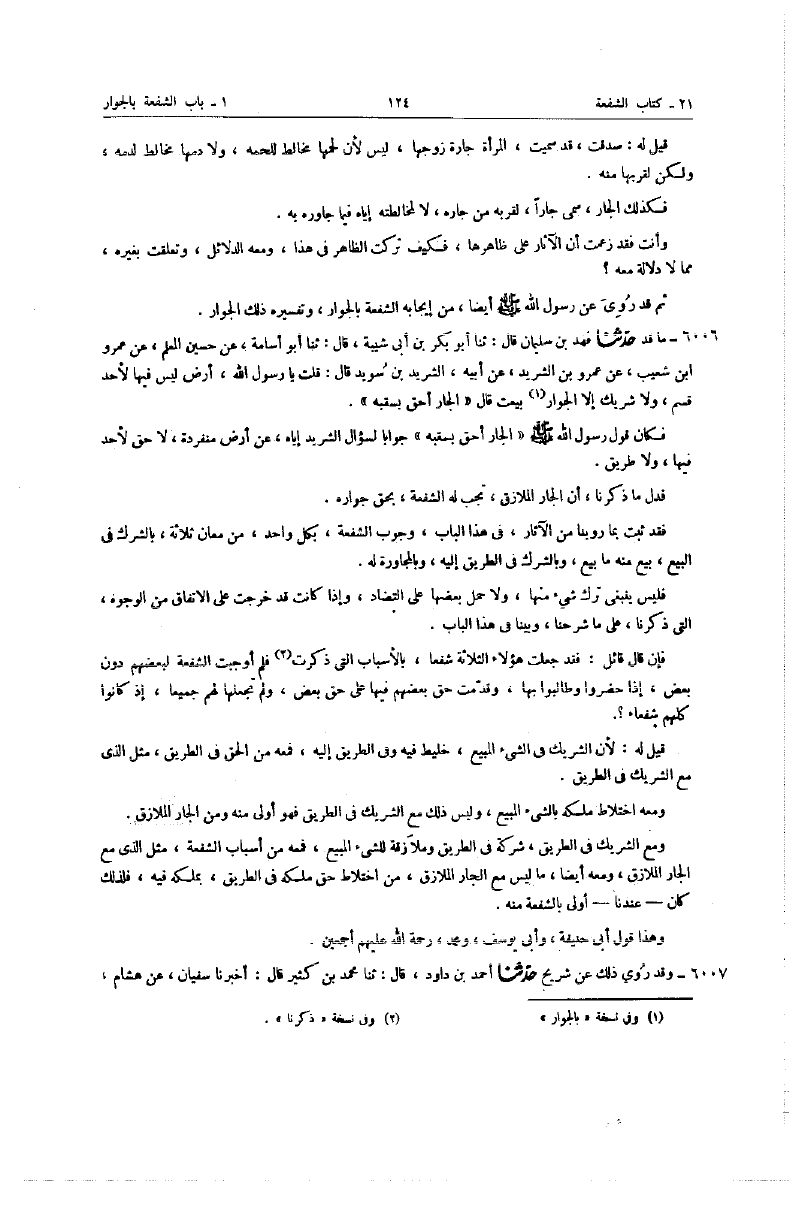 ٢١ ـ كتاب الشفعة ١٢٤ ١ ـ باب الشفعة بالجوار
قيل له : صدقت ، قد سميت ، المرأة جارة زوجها ، ليس لأن لحمها مخالط للحمه ، ولا دمها مخالط لدمه ،
ولكن لقربها منه .
فكذلك الجار ، سمى جاراً ، لقربه من جاره ، لا لمخالطته إياه فيما جاوره به .
وأنت فقد زعمت أن الآثار على ظاهرها ، فكيف تركت الظاهر فى هذا ، ومعه الدلائل ، وتعلقت بغيره ،
مما لا دلالة معه ؟
ثم قد رُوىَ عن رسول الله ﷺ أيضا ، من إيجابه الشفعة بالجوار ، وتفسيره ذلك الجوار .
٦٠٠٦ ـ ما قد حَدَّثَنَا فهد بن سليمان قال : ثنا أبو بكر بن أبى شيبة ، قال : ثنا أبو أسامة ، عن حسين المعلم ، عن عمرو
ابن شعيب ، عن عمرو بن الشريد ، عن أبيه ، الشريد بن سُويد قال : قلت يا رسول الله ، أرض ليس فيها لأحد
قسم ، ولا شريك إلا الجوار(١) بيعت قال « الجار أحق بسقبه » .
فكان قول رسول الله ﷺ « الجار أحق بسقبه » جوابا لسؤال الشريد إياه ، عن أرض منفردة ، لا حق لأحد
فيها ، ولا طريق .
فدل ما ذكرنا ، أن الجار الملازق ، تجب له الشفعة ، بحق جواره .
فقد ثبت بما روينا من الآثار ، فى هذا الباب ، وجوب الشفعة ، بكل واحد ، من معان ثلاثة ، بالشرك فى
البيع ، بيع منه ما بيع ، وبالشرك فى الطريق إليه ، وبالمجاورة له .
فليس ينبغى ترك شىء منها ، ولا حمل بعضها على التضاد ، وإذا كانت قد خرجت على الاتفاق من الوجوه ،
التى ذكرنا ، على ما شرحنا ، وبينا فى هذا الباب .
فإن قال قائل : فقد جعلت هؤلاء الثلاثة شفعا ، بالأسباب التى ذكرت(٢) فلم أوجبت الشفعة لبعضهم دون
بعض ، إذا حضروا وطالبوا بها ، وقدّمت حق بعضهم فيها على حق بعض ، ولم تجعلها لهم جميعا ، إذ كانوا
كلهم شفعاء ؟.
قيل له : لأن الشريك فى الشىء المبيع ، خليط فيه وفى الطريق إليه ، فمعه من الحق فى الطريق ، مثل الذى
مع الشريك فى الطريق .
ومعه اختلاط ملكه بالشىء المبيع ، وليس ذلك مع الشريك فى الطريق فهو أولى منه ومن الجار الملازق .
ومع الشريك فى الطريق ، شركة فى الطريق وملازقة للشىء المبيع ، فمعه من أسباب الشفعة ، مثل الذى مع
الجار الملازق ، ومعه أيضا ، ما ليس مع الجار الملازق ، من اختلاط حق ملكه فى الطريق ، بملكه فيه ، فلذلك
كان — عندنا — أولى بالشفعة منه .
وهذا قول أبى حنيفة ، وأبى يوسف ، ومحمد ، رحمة الله عليهم أجمعين .
٦٠٠٧ ـ وقد رُوي ذلك عن شريح حَدَّثَنَا أحمد بن داود ، قال : ثنا محمد بن كثير قال : أخبرنا سفيان ، عن هشام ،
(١) وفى نسخة « بالجوار » (٢) وفى نسخة « ذكرنا » .